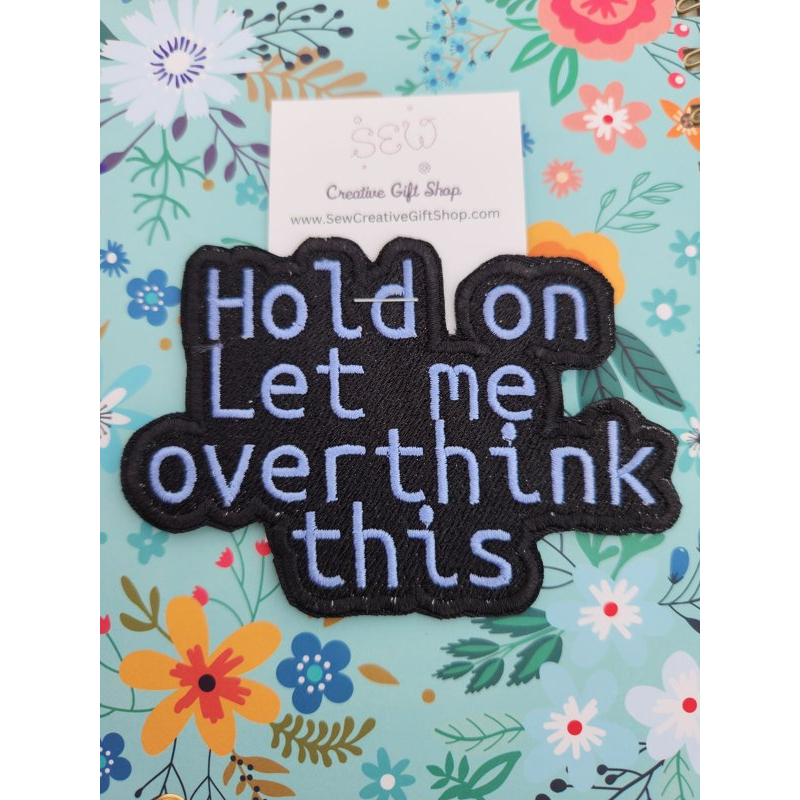 SEW
Creative Gift Shop
www.SewCreativeGiftShop.com
Hold on
Let me
overthink
this